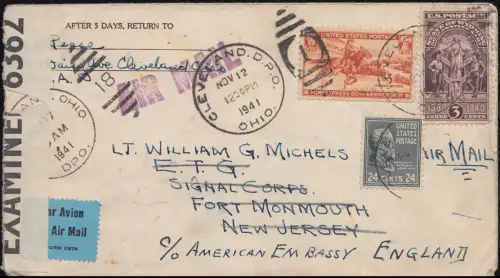 EXAMINER 6362
AFTER 5 DAYS, RETURN TO
Cleveland
AIR MAIL
CLEVELAND, D.P.O.
NOV 12
1941
OHIO.
UNITED STATES POSTAGE
PONY EXPRESS 80th ANNIVERSARY
U.S. POSTAGE
3
CENTS
OHIO
AM
1941
D.P.O.
UNITED STATES POSTAGE
24 CENTS 24
AIR MAIL
LT. WILLIAM G. MICHELS
E.T.G.
SIGNAL CORPS.
FORT MONMOUTH
NEW JERSEY
C/O AMERICAN EMBASSY ENGLAND
ar Avion
Air Mail